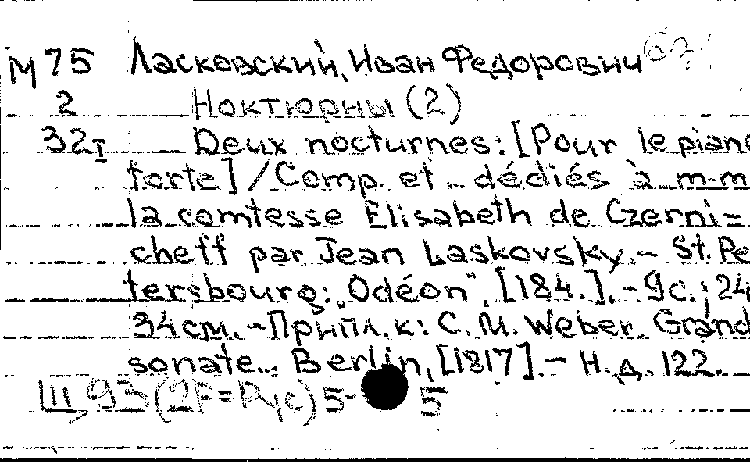 М 75 Ласковский, Иван Федорович
2 Ноктюрны (2)
32I Deux nocturnes: [Pour le piano
forte] / Comp. et dédiés à m-m
la comtesse Elisabeth de Czerni=
cheff par Jean Laskovsky. - St. Pe
tersbourg: "Odéon", [184.]. - 9с.; 24
34см. - Припл. к: C. M. Weber. Grand
sonate... Berlin, [1817]. - Н.д. 122.
Щ 93 (2Р=Рус) 5- 5